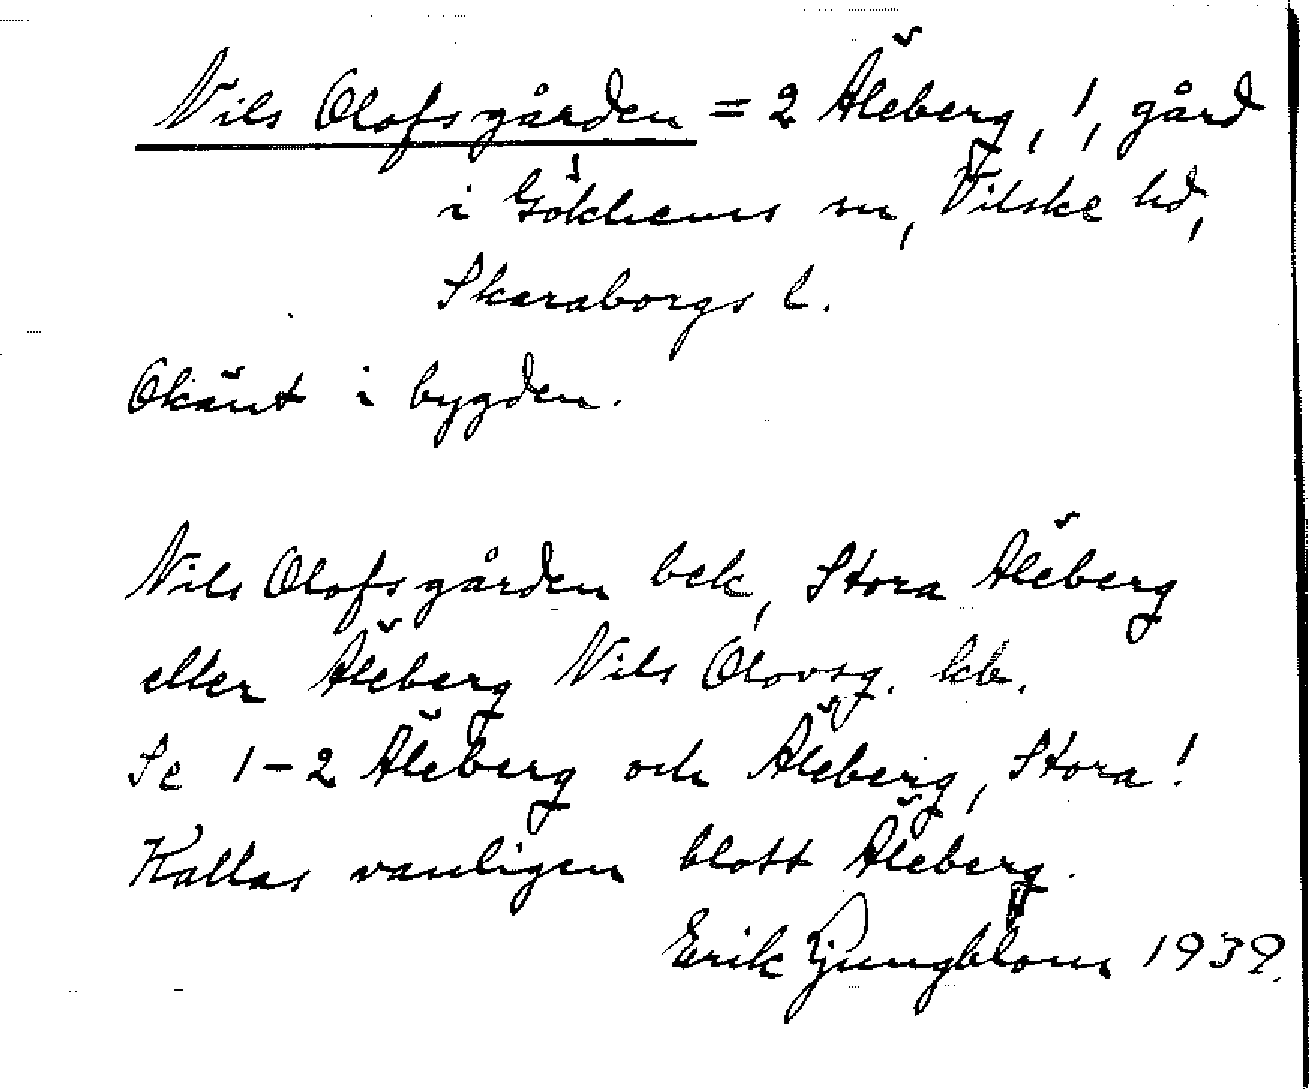 Nils Olofsgården = 2 Äleberg, !, gård
i Gökhems sn, Vilske hd,
Skaraborgs l.
Okänt i bygden.
Nils Olofsgården bek, Stora Äleberg
eller Äleberg Nils Olovsg. kb.
Se 1-2 Äleberg och Äleberg, Stora!
Kallas vanligen blott Äleberg.
Erik Ljungblom 1939.